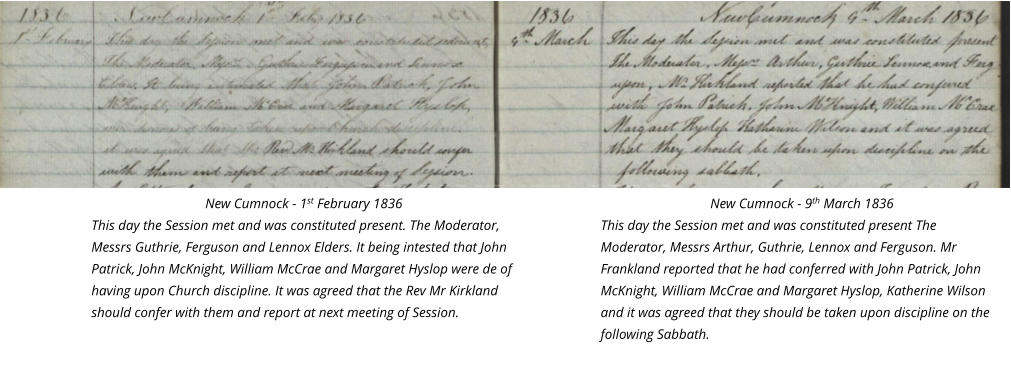 1836
New Cumnock 1st Feby 1836
1st February
This day the Session met and was constituted sederunt,
The Moderator, Messrs Guthrie Ferguson and Lennox
Elders. It being intimated that John Patrick, John
McKnight, William McCrae and Margaret Hyslop,
were desirous of being taken upon church discipline,
it was agreed that the Revd Mr Kirkland should confer
with them and report at next meeting of Session.
1836
New Cumnock 9th March 1836
9th March
This day the Session met and was constituted present
The Moderator, Messrs Arthur, Guthrie Lennox and Ferg
uson, Mr Kirkland reported that he had conferred
with John Patrick, John McKnight, William McCrae
Margaret Hyslop Katharine Wilson and it was agreed
that they should be taken upon discipline on the
following sabbath.
New Cumnock - 1st February 1836
This day the Session met and was constituted present. The Moderator,
Messrs Guthrie, Ferguson and Lennox Elders. It being intested that John
Patrick, John McKnight, William McCrae and Margaret Hyslop were de of
having upon Church discipline. It was agreed that the Rev Mr Kirkland
should confer with them and report at next meeting of Session.
New Cumnock - 9th March 1836
This day the Session met and was constituted present The
Moderator, Messrs Arthur, Guthrie, Lennox and Ferguson. Mr
Frankland reported that he had conferred with John Patrick, John
McKnight, William McCrae and Margaret Hyslop, Katherine Wilson
and it was agreed that they should be taken upon discipline on the
following Sabbath.